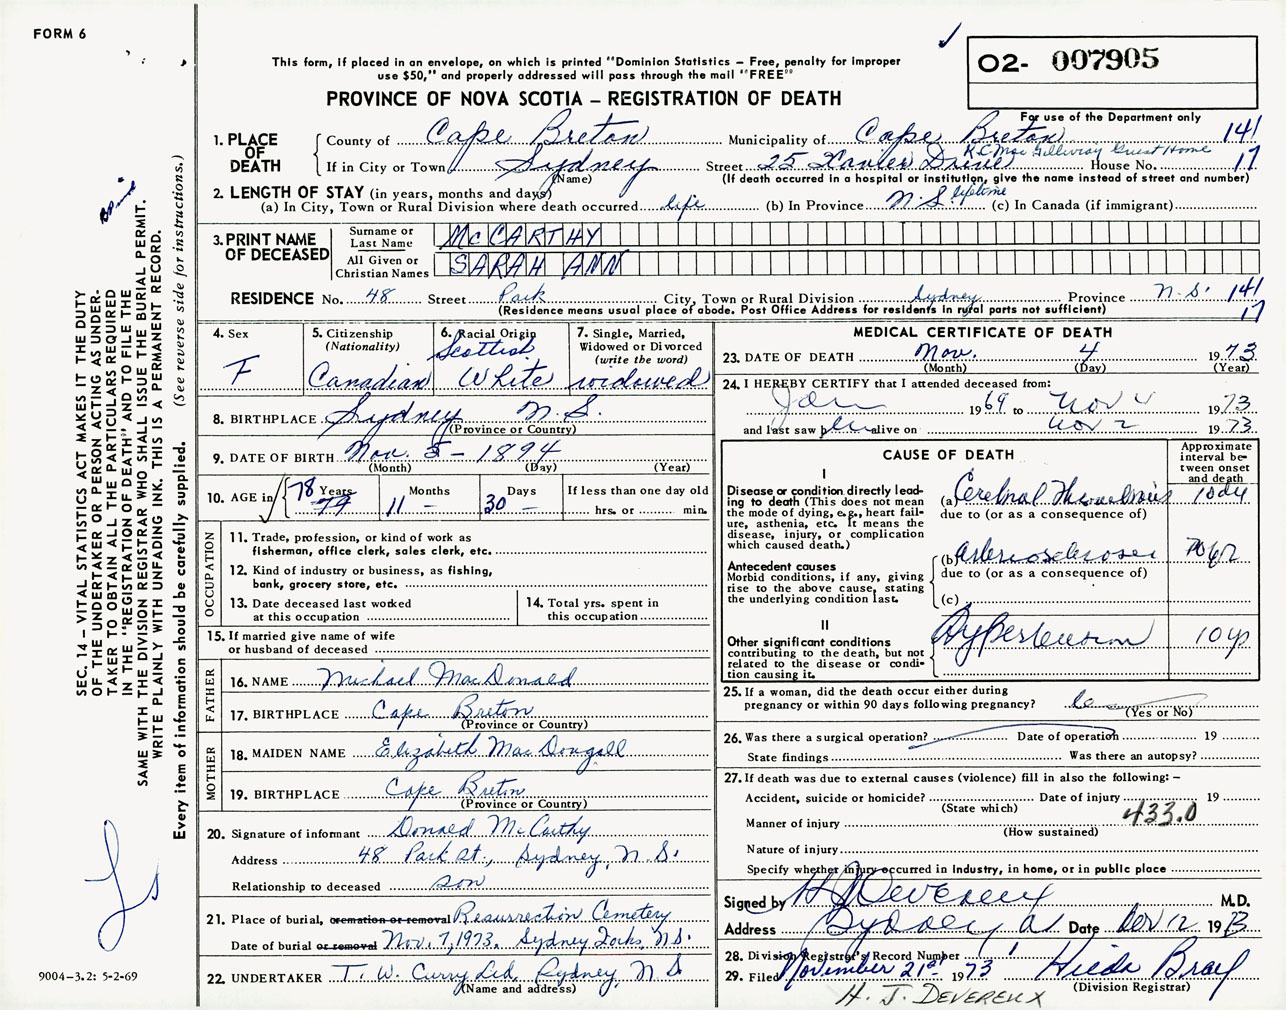 FORM 6
This form, if placed in an envelope, on which is printed "Dominion Statistics – Free, penalty for improper
use $50," and properly addressed will pass through the mail "FREE"
O2- 007905
PROVINCE OF NOVA SCOTIA – REGISTRATION OF DEATH
For use of the Department only
1. PLACE OF DEATH
County of Cape Breton Municipality of Cape Breton 141
R.C. Mac Gillivray Guest Home
If in City or Town Sydney Street 25 Xavier Drive House No. 17
(Name) (If death occurred in a hospital or institution, give the name instead of street and number)
2. LENGTH OF STAY (in years, months and days)
(a) In City, Town or Rural Division where death occurred life (b) In Province N.S. lifetime (c) In Canada (if immigrant)
3. PRINT NAME OF DECEASED
Surname or Last Name McCARTHY
All Given or Christian Names SARAH ANN
RESIDENCE No. 48 Street Park City, Town or Rural Division Sydney Province N.S. 141
(Residence means usual place of abode. Post Office Address for residents in rural parts not sufficient) 17
4. Sex F
5. Citizenship (Nationality) Canadian
6. Racial Origin Scottish White
7. Single, Married, Widowed or Divorced (write the word) widowed
8. BIRTHPLACE Sydney N.S.
(Province or Country)
9. DATE OF BIRTH Nov. 5 – 1894
(Month) (Day) (Year)
10. AGE in 78 79 Years 11 – Months 30 – Days If less than one day old
hrs. or min.
OCCUPATION
11. Trade, profession, or kind of work as
fisherman, office clerk, sales clerk, etc.
12. Kind of industry or business, as fishing,
bank, grocery store, etc.
13. Date deceased last worked
at this occupation
14. Total yrs. spent in
this occupation
15. If married give name of wife
or husband of deceased
FATHER
16. NAME Michael MacDonald
17. BIRTHPLACE Cape Breton
(Province or Country)
MOTHER
18. MAIDEN NAME Elizabeth MacDougall
19. BIRTHPLACE Cape Breton
(Province or Country)
20. Signature of informant Donald McCarthy
Address 48 Park St., Sydney, N.S.
Relationship to deceased son
21. Place of burial, cremation or removal Resurrection Cemetery
Date of burial or removal Nov. 7, 1973. Sydney Forks, N.S.
22. UNDERTAKER T. W. Curry Ltd, Sydney, N.S.
(Name and address)
MEDICAL CERTIFICATE OF DEATH
23. DATE OF DEATH Nov. 4 1973
(Month) (Day) (Year)
24. I HEREBY CERTIFY that I attended deceased from:
Jan 1969 to Nov 4 1973
and last saw her alive on Nov 2 1973
CAUSE OF DEATH
Approximate interval between onset and death
I
Disease or condition directly leading to death (This does not mean
the mode of dying, e.g., heart failure, asthenia, etc. It means the
disease, injury, or complication
which caused death.)
(a) Cerebral Thrombosis
due to (or as a consequence of)
Antecedent causes
Morbid conditions, if any, giving
rise to the above cause, stating
the underlying condition last.
(b) arteriosclerosis
due to (or as a consequence of)
(c)
II
Other significant conditions
contributing to the death, but not
related to the disease or condition causing it.
Hypertension 10 yr
25. If a woman, did the death occur either during
pregnancy or within 90 days following pregnancy?
(Yes or No)
26. Was there a surgical operation? Date of operation 19
State findings Was there an autopsy?
27. If death was due to external causes (violence) fill in also the following: –
Accident, suicide or homicide? Date of injury 19
(State which)
433.0
Manner of injury
(How sustained)
Nature of injury
Specify whether injury occurred in industry, in home, or in public place
Signed by H J Devereux M.D.
Address Sydney Date Nov 12 1973
28. Division Registrar's Record Number
29. Filed November 21st 1973 Hilda Bray
(Division Registrar)
H. J. DEVEREUX
SEC. 14 – VITAL STATISTICS ACT MAKES IT THE DUTY
OF THE UNDERTAKER OR PERSON ACTING AS UNDERTAKER TO OBTAIN ALL THE PARTICULARS REQUIRED
IN THE "REGISTRATION OF DEATH" AND TO FILE THE
SAME WITH THE DIVISION REGISTRAR WHO SHALL ISSUE THE BURIAL PERMIT.
WRITE PLAINLY WITH UNFADING INK. THIS IS A PERMANENT RECORD.
Every item of information should be carefully supplied. (See reverse side for instructions.)
9004–3.2: 5-2-69